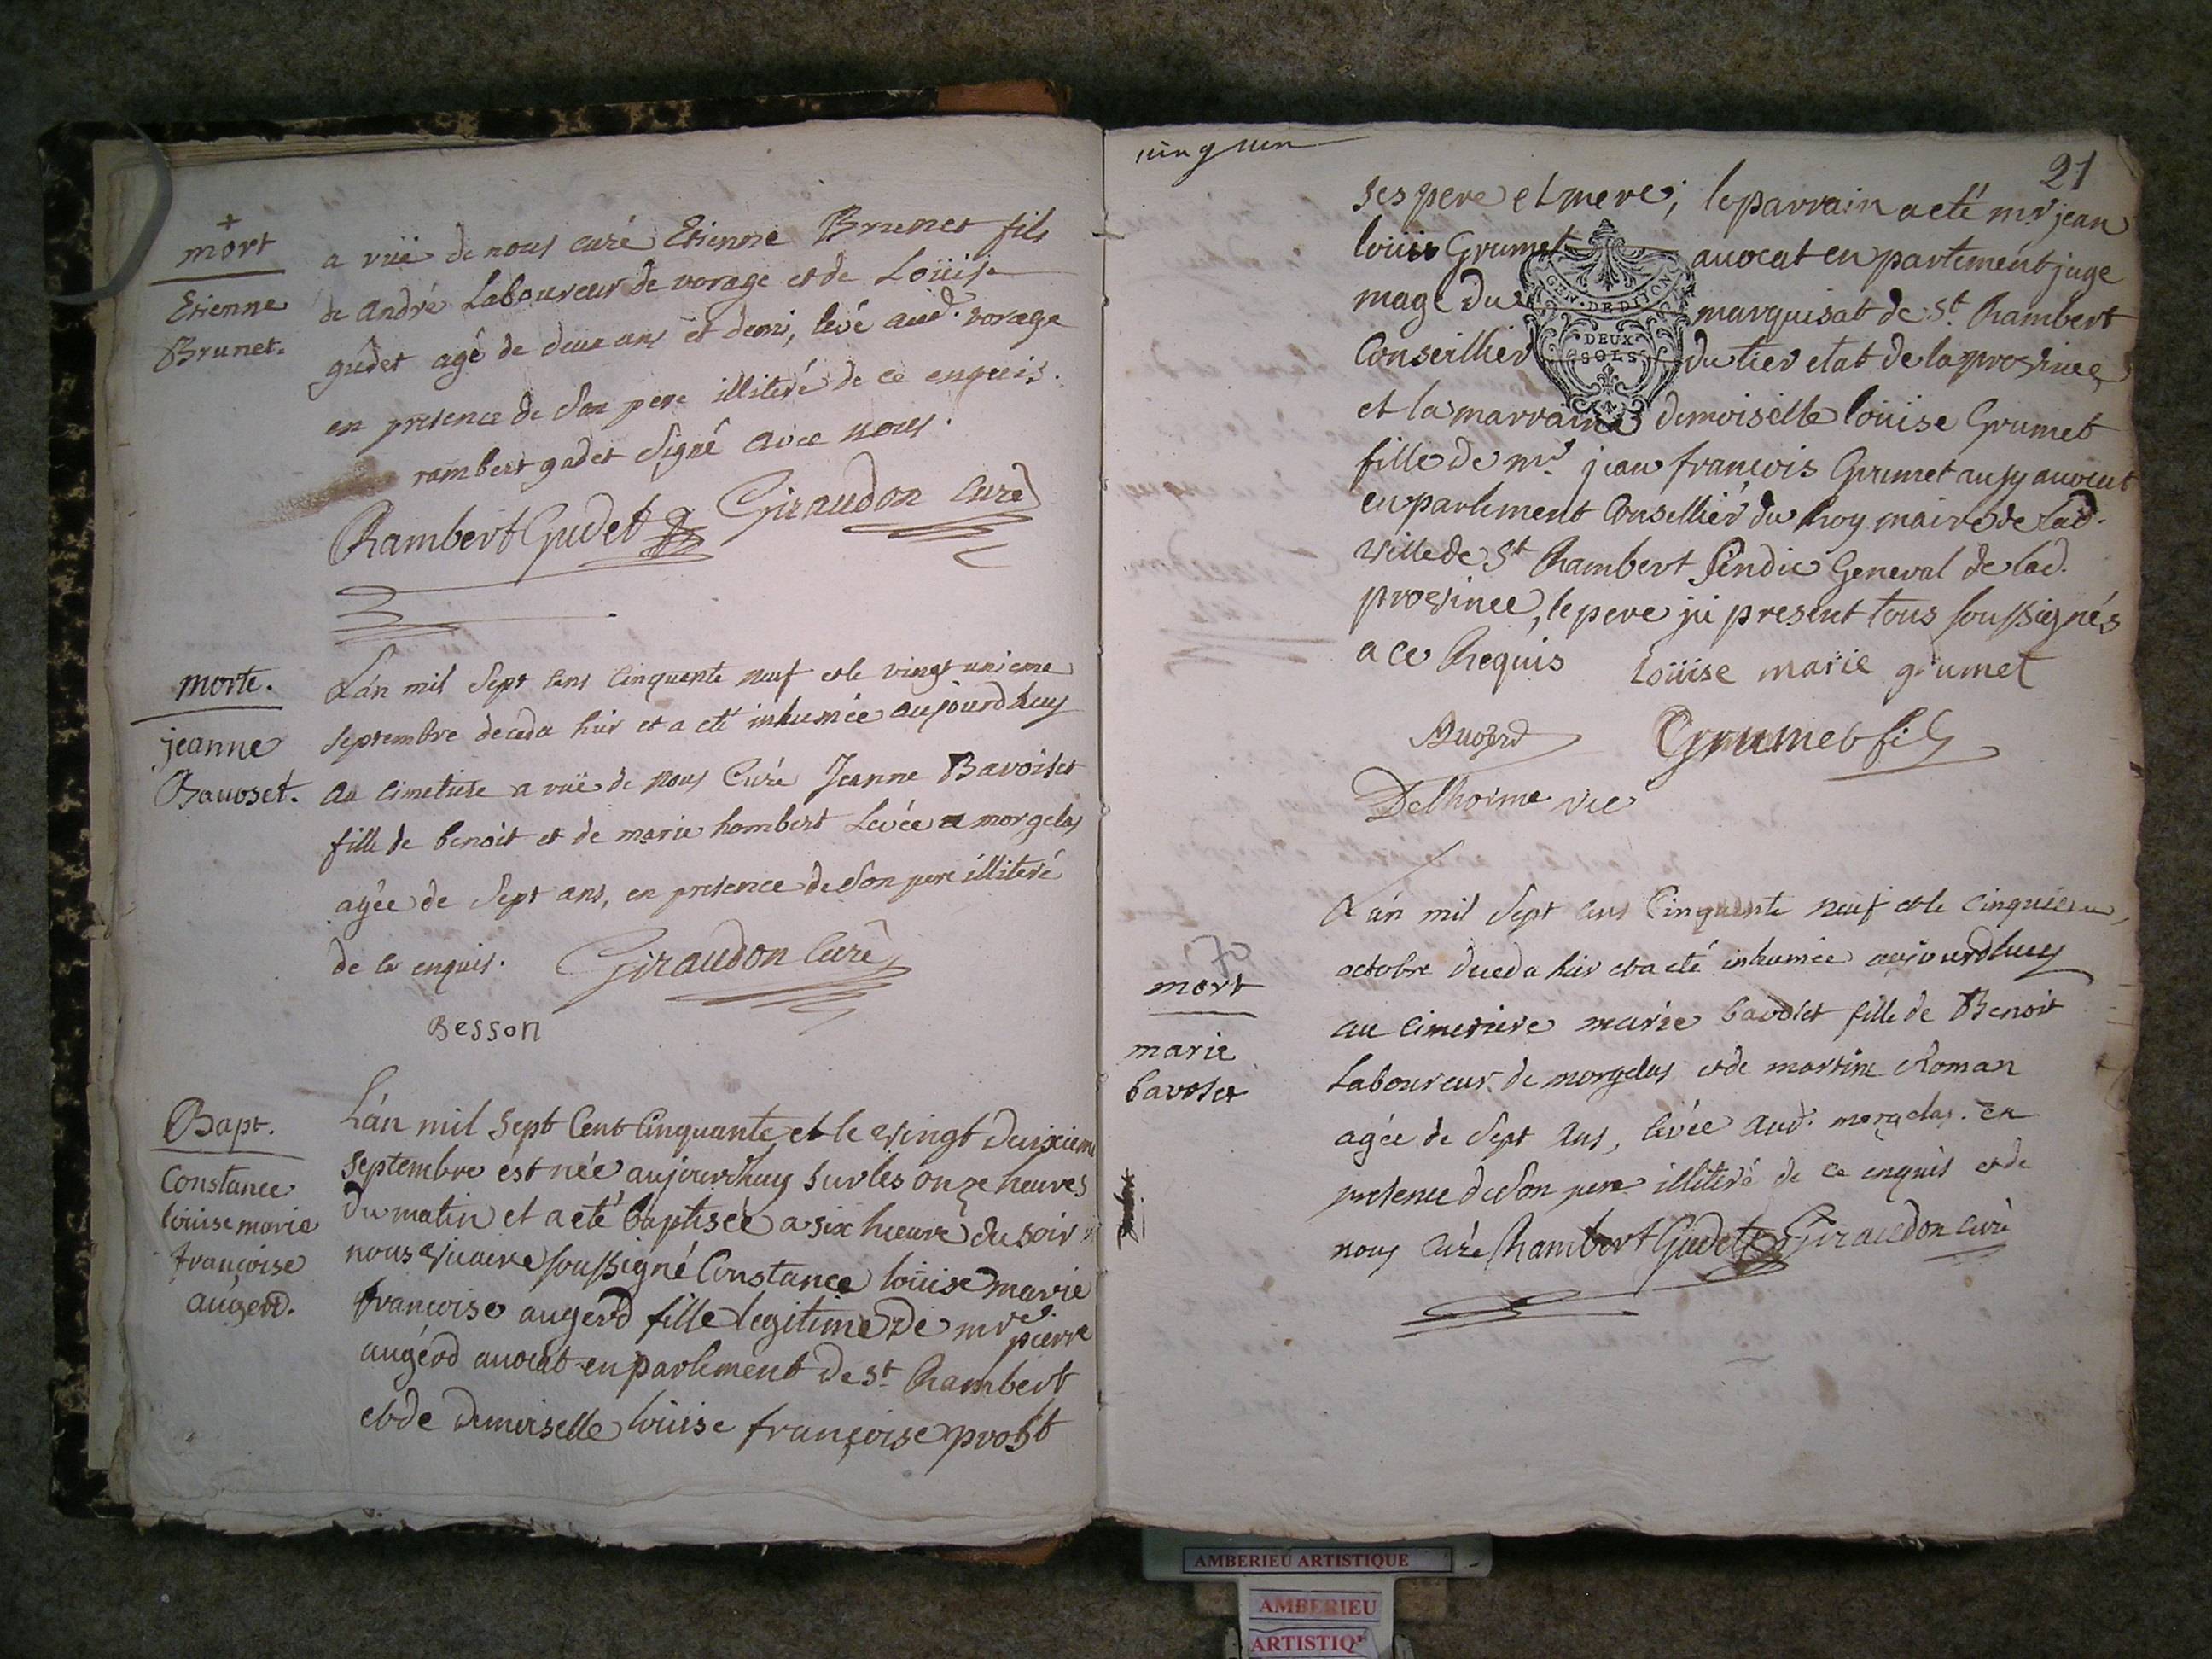 mort
Etienne
Brunet.
a vüe de nous curé Etienne Brunet fils
de andré Laboureur de vorage et de Loüise
gudet agé de deux ans et demi, levé aud. vorage
en presence de son pere illiteré de ce enquis.
rambert gudet signé avec nous.
Rambert Gudet Giraudon Curé
morte.
jeanne
Bauoset.
L'an mil sept cens cinquante neuf et le vingt unieme
septembre deceda hier et a eté inhumée aujourdhuy
au cimetiere a vüe de nous Curé Jeanne Bavoset
fille de benoit et de marie hombert Levée a morgelas
agée de sept ans, en presence de son pere illiteré
de ce enquis. Giraudon Curé
Besson
Bapt.
Constance
loüise marie
françoise
augerd.
L'an mil sept Cent Cinquante et le vingt deuxieme
septembre est née aujourdhuy sur les onze heures
du matin et a eté baptisée a six heure du soir
nous vicaire soussigné Constance loüise marie
françoise augerd fille legitime de mre pierre
augérd auocat en parlement de st Rambert
et de demoiselle loüise françoise probt
21
ses pere et mere; le parrain a eté mr jean
loüis Grumet auocat en partement juge
mage du marquisat de st Rambert
Conseillier du tier etat de la province
et la marraine demoiselle loüise Grumet
fille de mr jean françois Grumet ausy auocat
en parlement Consellier du Roy maire de lad.
ville de st Rambert sindic General de lad.
province, le pere ici present tous soussignés
a ce Requis Loüise marie grumet
GEN. DE DIJON
DEUX
SOLS
Augerd Grumet fils
Delhorme vic
mort
marie
bavoset
L'an mil sept cens Cinquante neuf et le cinquieme
octobre deceda hier et a eté inhumée aujourdhuy
au cimetiere marie bavoset fille de Benoit
Laboureur de morgelas et de martine Roman
agée de sept ans, levée aud. morgelas. en
presence de son pere illiteré de ce enquis et de
nous Curé Rambert Gudet Giraudon curé
AMBERIEU ARTISTIQUE
AMBERIEU
ARTISTIQ